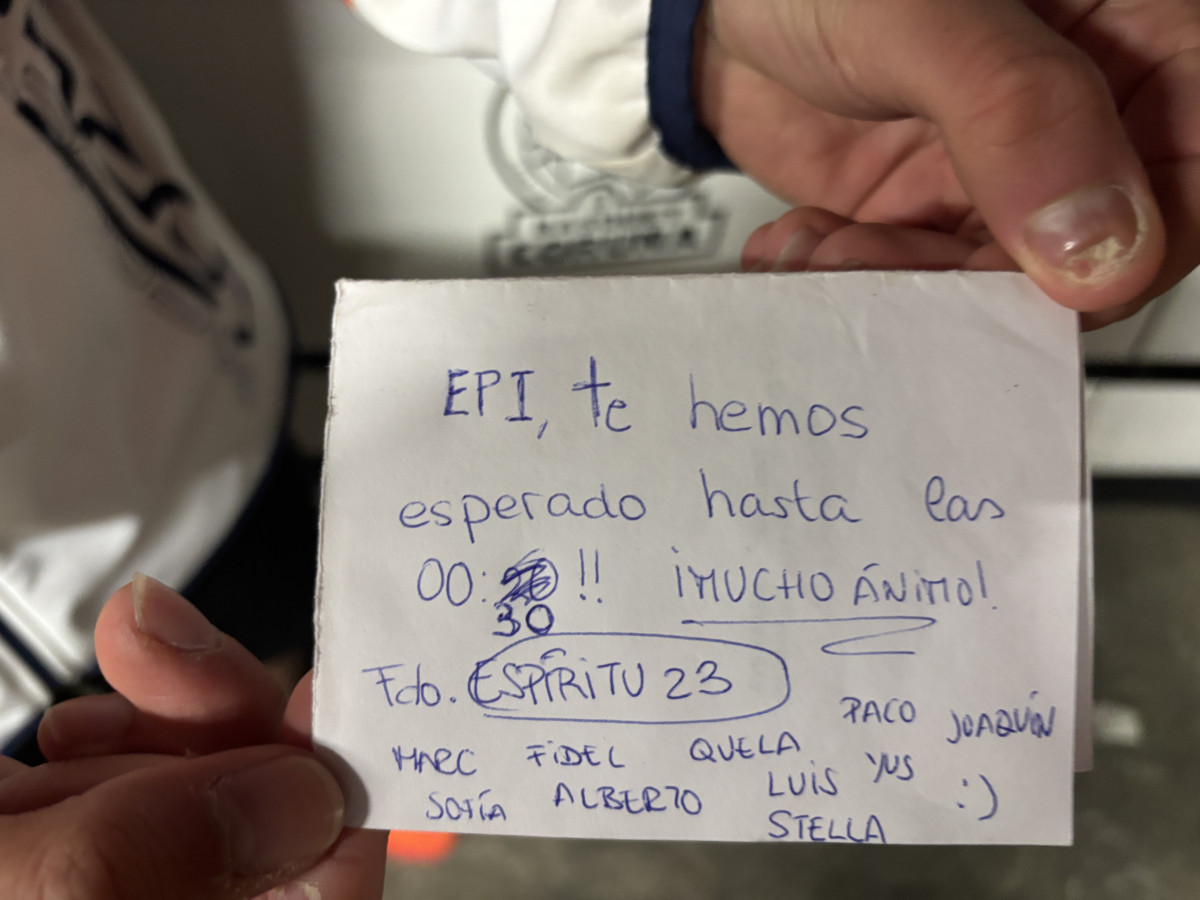 EPI, te hemos
esperado hasta las
00: !! ¡MUCHO ÁNIMO!
30
Fdo. ESPÍRITU 23
PACO JOAQUÍN
MARC FIDEL QUELA
LUIS YUS
SOFÍA ALBERTO :)
STELLA